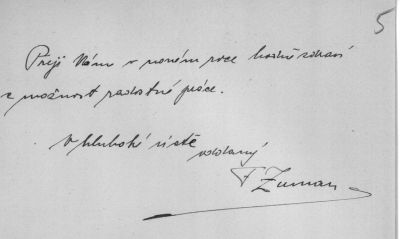 5
Přeji Vám v novém roce hodně zdraví
a možnost radostné práce.
V hluboké úctě
oddaný
F Zuman